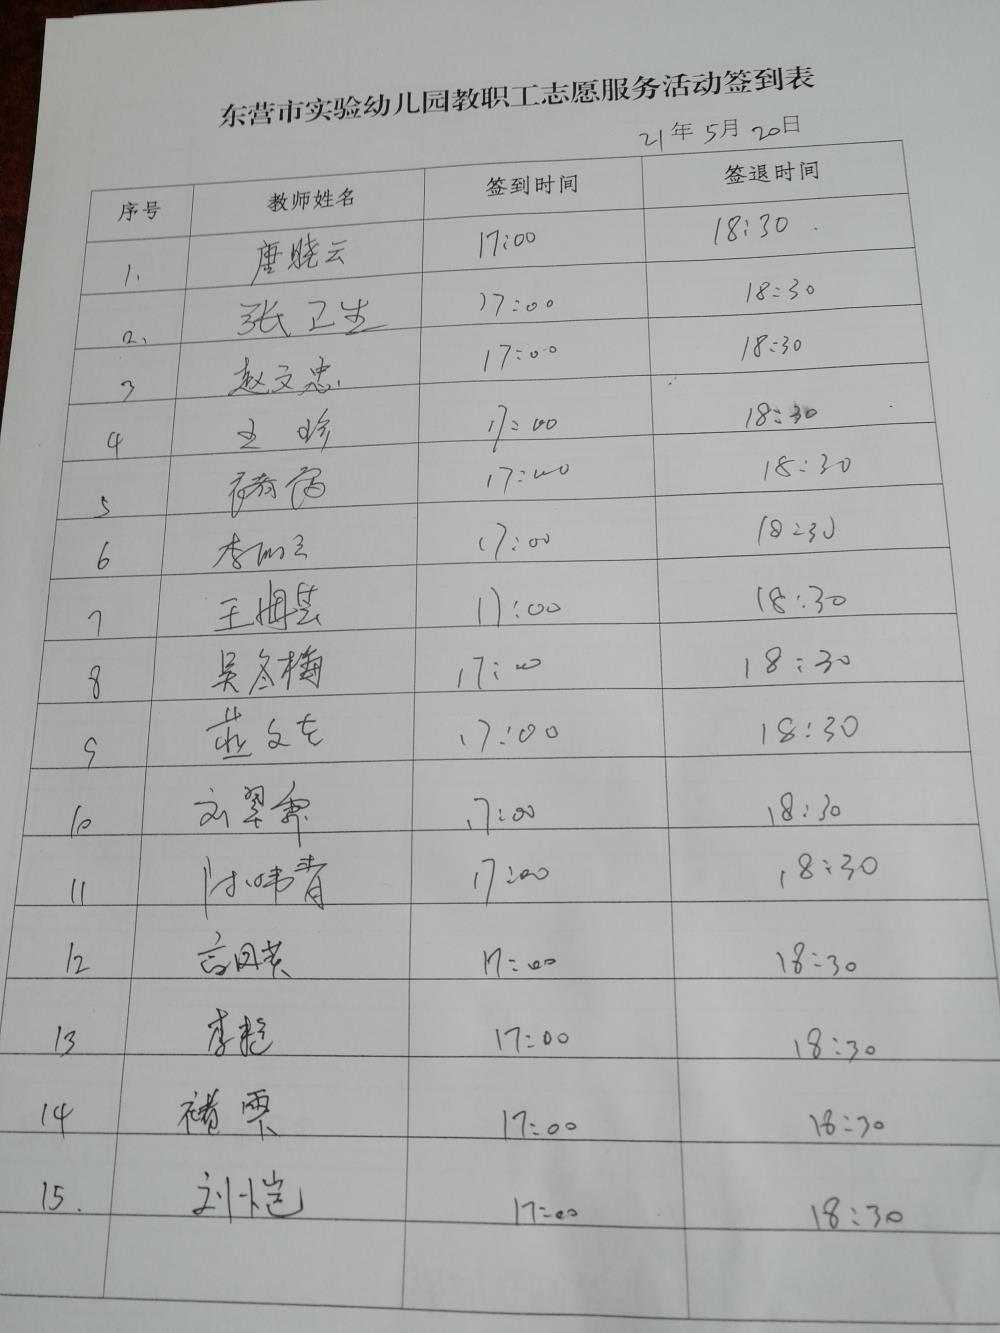 东营市实验幼儿园教职工志愿服务活动签到表
21年5月20日
序号 教师姓名 签到时间 签退时间
1. 唐晓云 17:00 18:30
2. 张卫生 17:00 18:30
3 赵文忠 17:00 18:30
4 王珍 17:00 18:30
5 17:00 18:30
6 李 17:00 18:30
7 王海芸 17:00 18:30
8 吴冬梅 17:00 18:30
9 燕文 17:00 18:30
10 刘翠霏 17:00 18:30
11 陈炜青 17:00 18:30
12 17:00 18:30
13 李艳 17:00 18:30
14 褚霞 17:00 18:30
15. 刘恺 17:00 18:30